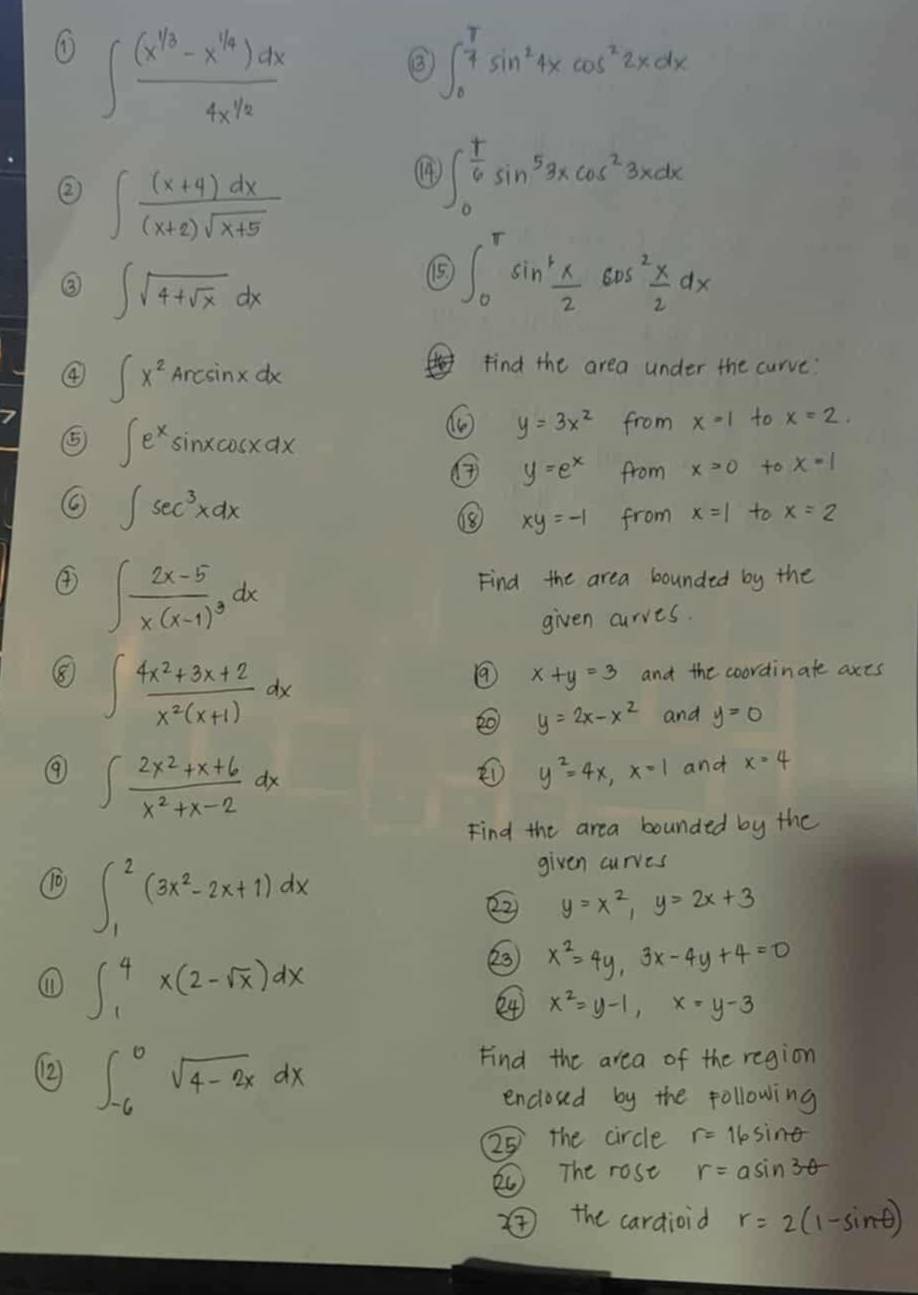 ① ∫ (x^1/3 - x^1/4) dx / 4x^1/2
② ∫ (x+4) dx / (x+2)√x+5
③ ∫ √4+√x dx
④ ∫ x² Arcsinx dx
⑤ ∫ e^x sinxcosxdx
⑥ ∫ sec³xdx
⑦ ∫ 2x-5 / x(x-1)³ dx
⑧ ∫ 4x²+3x+2 / x²(x+1) dx
⑨ ∫ 2x²+x+6 / x²+x-2 dx
⑩ ∫₁² (3x²-2x+1) dx
⑪ ∫₁⁴ x(2-√x)dx
⑫ ∫₋₆⁰ √4-2x dx
⑬ ∫ sin 4x cos²2xdx
⑭ ∫ sin⁵3x cos²3xdx
⑮ ∫ sin x/2 cos² x/2 dx
Find the area under the curve:
⑯ y = 3x² from x=1 to x=2.
⑰ y=e^x from x=0 to x=1
⑱ xy=-1 from x=1 to x=2
Find the area bounded by the
given curves.
⑲ x+y=3 and the coordinate axes
⑳ y=2x-x² and y=0
㉑ y²=4x, x=1 and x=4
Find the area bounded by the
given curves
㉒ y=x², y=2x+3
㉓ x²=4y, 3x-4y+4=0
㉔ x²=y-1, x=y-3
Find the area of the region
enclosed by the following
㉕ the circle r=16sinθ
㉖ The rose r=asin3θ
㉗ the cardioid r=2(1-sinθ)